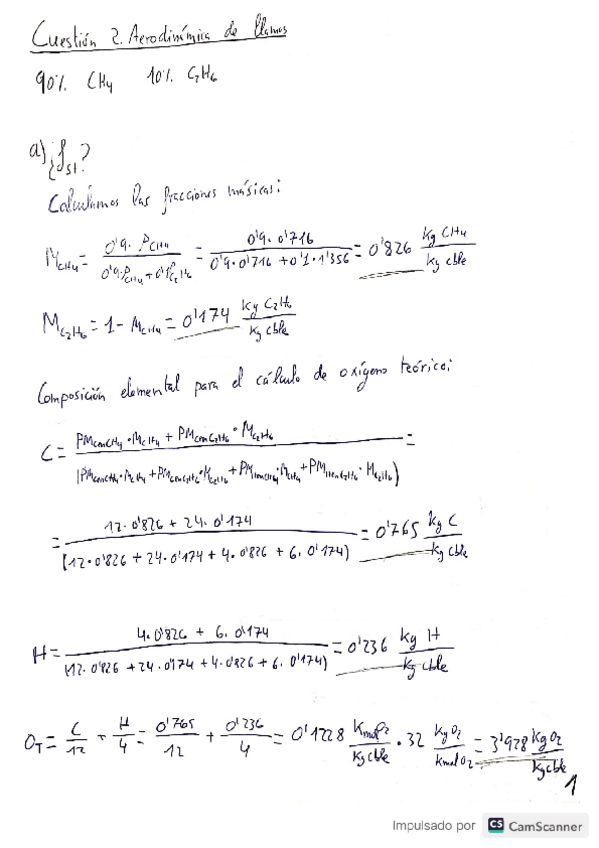 Cuestión 2. Aerodinámica de llamas
90% CH4 10% C2H6
a) ¿fst?
Calculamos las fracciones másicas:
MCH4 = 0'9·ρCH4 / (0'9·ρCH4 + 0'1·ρC2H6) = 0'9·0'716 / (0'9·0'716 + 0'1·1'356) = 0'826 kg CH4 / kg cble
MC2H6 = 1 - MCH4 = 0'174 kg C2H6 / kg cble
Composición elemental para el cálculo de oxígeno teórico:
C = PMCenCH4·MCH4 + PMCenC2H6·MC2H6 / (PMCenCH4·MCH4 + PMCenC2H6·MC2H6 + PMHenCH4·MCH4 + PMHenC2H6·MC2H6) =
= 12·0'826 + 24·0'174 / (12·0'826 + 24·0'174 + 4·0'826 + 6·0'174) = 0'765 kg C / kg cble
H = 4·0'826 + 6·0'174 / (12·0'826 + 24·0'174 + 4·0'826 + 6·0'174) = 0'236 kg H / kg cble
OT = C/12 + H/4 = 0'765/12 + 0'236/4 = 0'1228 KmolO2 / kg cble · 32 kg O2 / kmol O2 = 3'928 kg O2 / kg cble
1
Impulsado por CS CamScanner